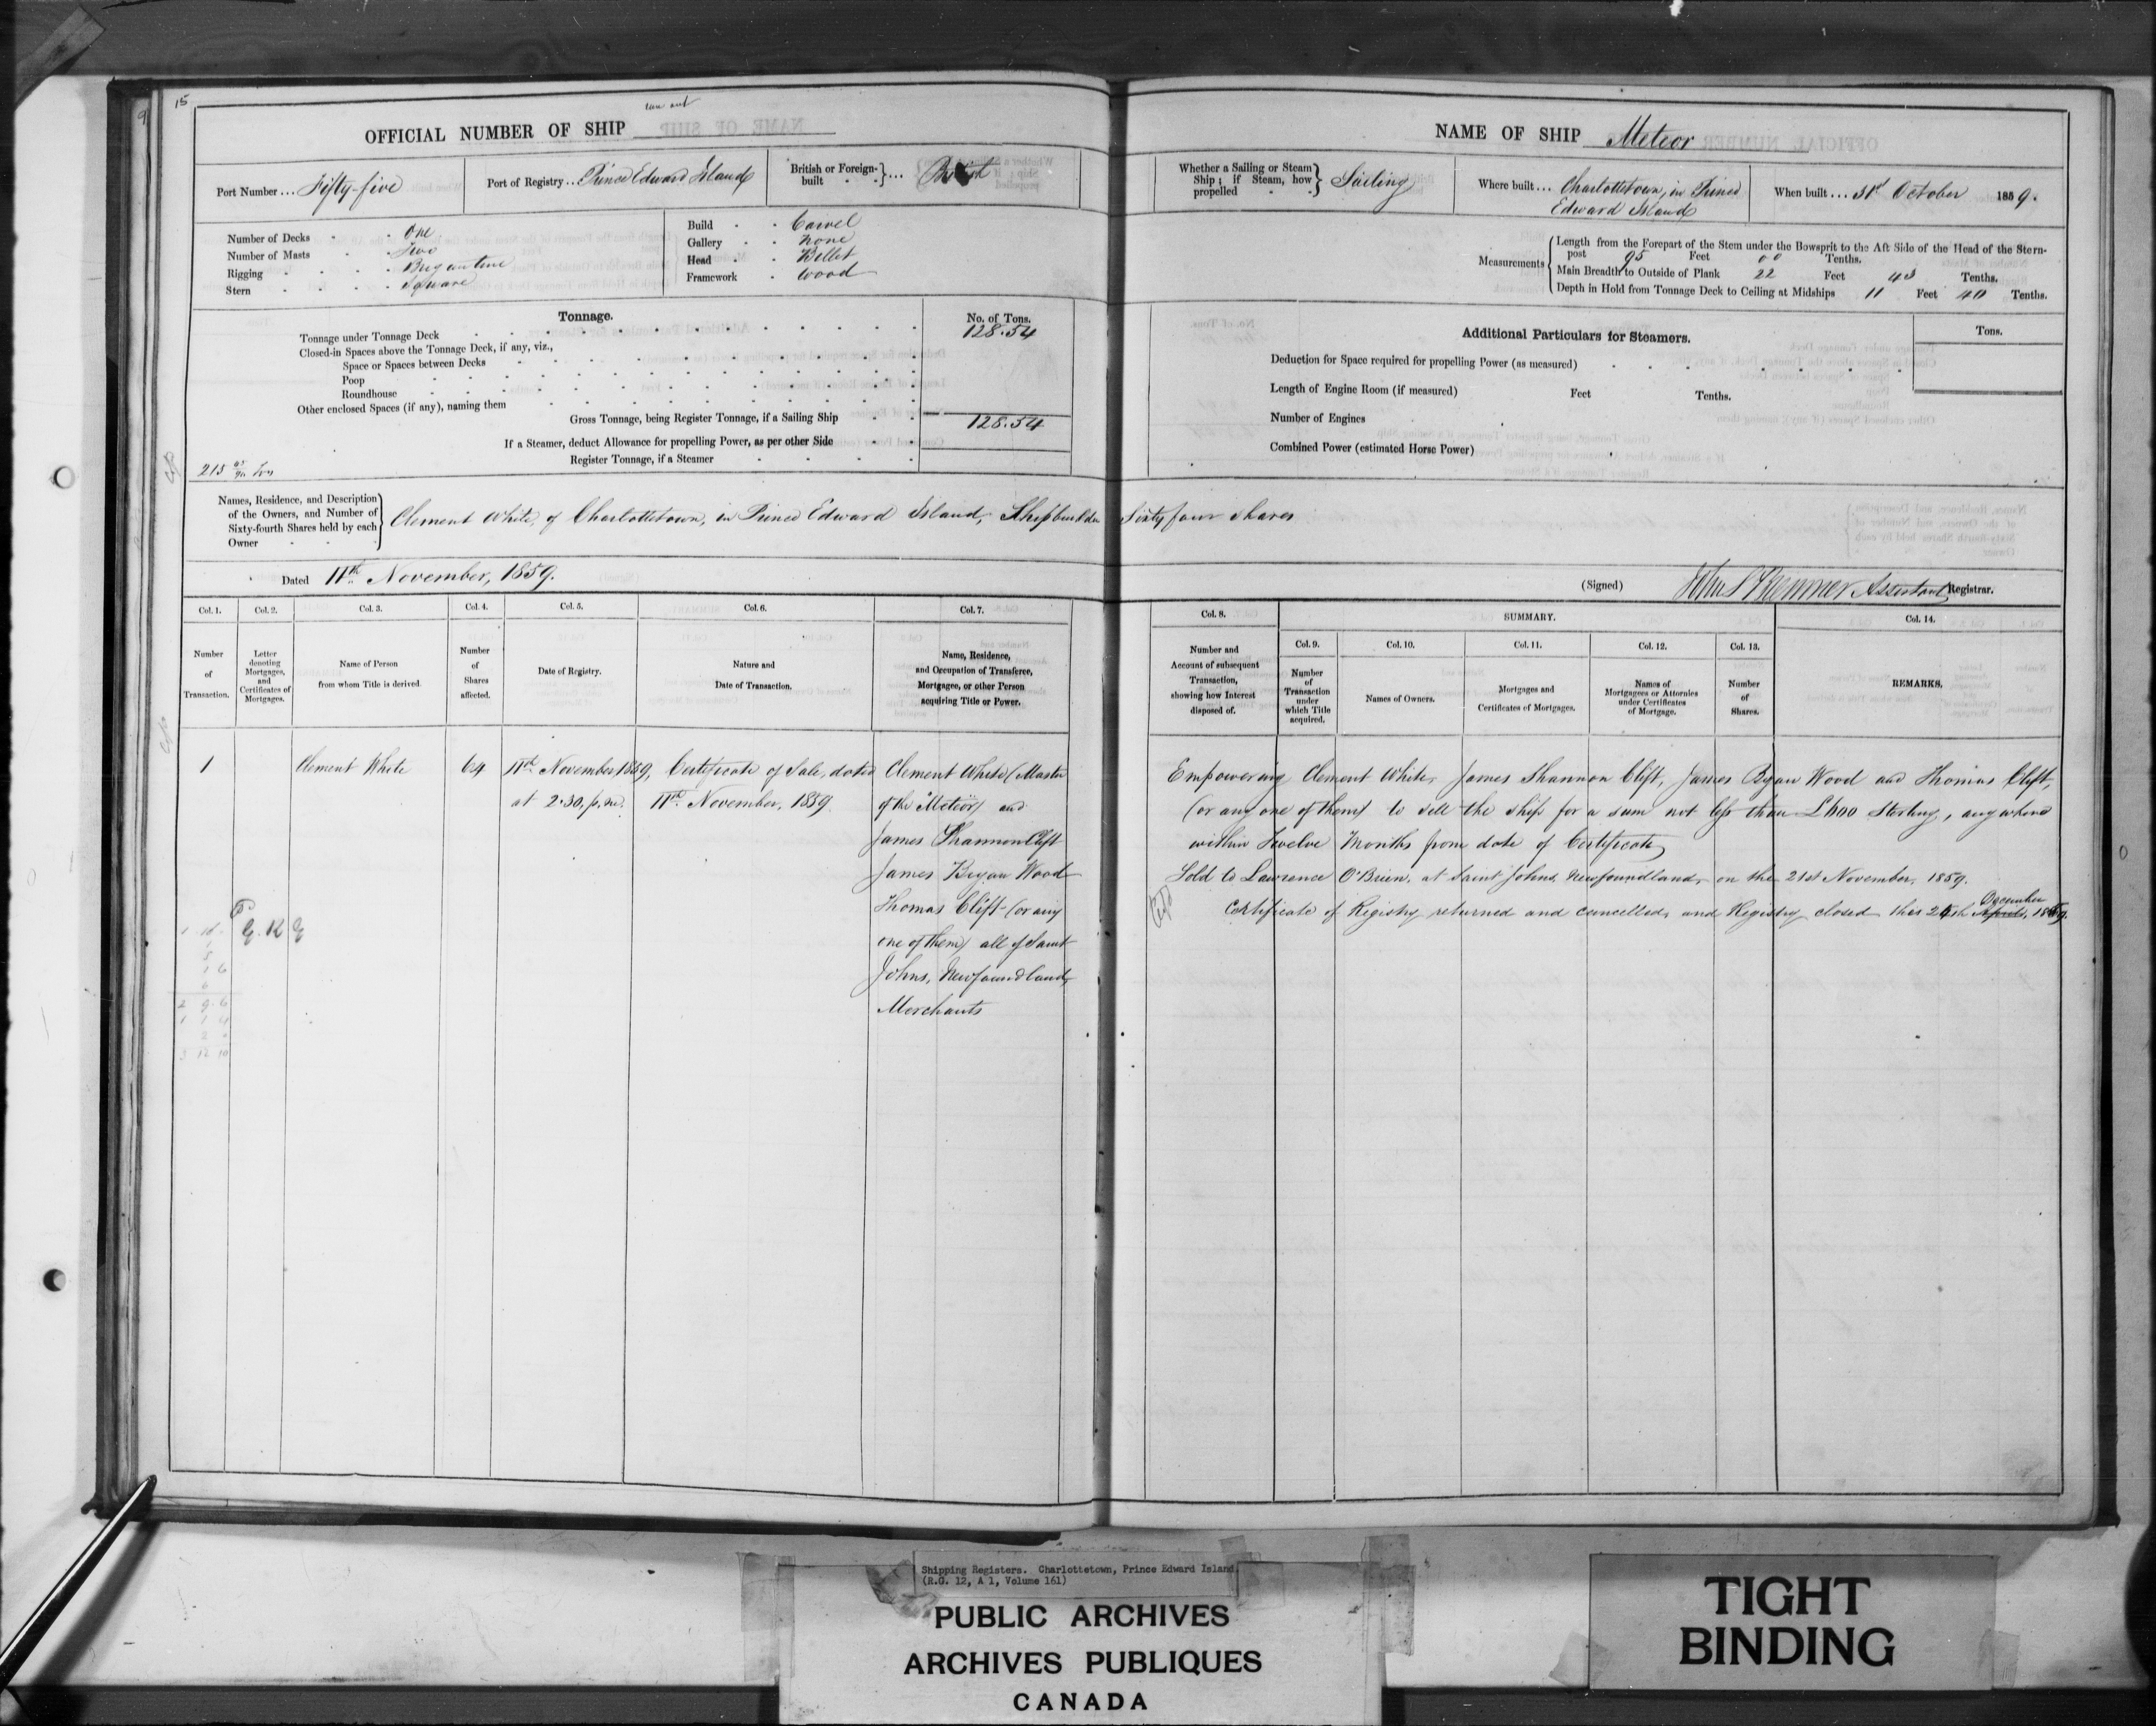 15
OFFICIAL NUMBER OF SHIP
Port Number ... Fifty-five
Port of Registry .. Prince Edward Island
British or Foreign-built ... British
Number of Decks One
Number of Masts Two
Rigging Brigantine
Stern Square
Build Carvel
Gallery None
Head Billet
Framework Wood
Tonnage.
No. of Tons.
Tonnage under Tonnage Deck 128.54
Closed-in Spaces above the Tonnage Deck, if any, viz.,
Space or Spaces between Decks
Poop
Roundhouse
Other enclosed Spaces (if any), naming them
Gross Tonnage, being Register Tonnage, if a Sailing Ship 128.54
If a Steamer, deduct Allowance for propelling Power, as per other Side
Register Tonnage, if a Steamer
NAME OF SHIP Meteor
Whether a Sailing or Steam Ship; if Steam, how propelled Sailing
Where built ... Charlottetown, in Prince
Edward Island
When built ... 31st October 1859.
Measurements
Length from the Forepart of the Stem under the Bowsprit to the Aft Side of the Head of the Stern-
post 95 Feet 00 Tenths.
Main Breadth to Outside of Plank 22 Feet 43 Tenths.
Depth in Hold from Tonnage Deck to Ceiling at Midships 11 Feet 40 Tenths.
Additional Particulars for Steamers.
Tons.
Deduction for Space required for propelling Power (as measured)
Length of Engine Room (if measured) Feet Tenths.
Number of Engines
Combined Power (estimated Horse Power)
Names, Residence, and Description
of the Owners, and Number of
Sixty-fourth Shares held by each
Owner
Clement White, of Charlottetown, in Prince Edward Island, Shipbuilder Sixty four shares
Dated 11th November, 1859.
(Signed) Assistant Registrar.
Col. 1. Col. 2. Col. 3. Col. 4. Col. 5. Col. 6. Col. 7.
Number of Transaction.
Letter denoting Mortgages, and Certificates of Mortgages.
Name of Person from whom Title is derived.
Number of Shares affected.
Date of Registry.
Nature and Date of Transaction.
Name, Residence, and Occupation of Transferee, Mortgagee, or other Person acquiring Title or Power.
Col. 8. SUMMARY. Col. 14.
Col. 9. Col. 10. Col. 11. Col. 12. Col. 13.
Number and Account of subsequent Transaction, showing how Interest disposed of.
Number of Transaction under which Title acquired.
Names of Owners.
Mortgages and Certificates of Mortgages.
Names of Mortgagees or Attornies under Certificates of Mortgage.
Number of Shares.
REMARKS.
1 Clement White 64 11th November 1859, Certificate of Sale, dated Clement White (Master
at 2.30. p.m. 11th November, 1859. of the "Meteor") and
James Shannon Clift
James Bryan Wood
Thomas Clift (or any
one of them) all of Saint
Johns, Newfoundland,
Merchants
Empowering Clement White, James Shannon Clift, James Bryan Wood and Thomas Clift,
(or any one of them) to sell the ship for a sum not less than £600 Sterling, anywhere
within Twelve Months from date of Certificate
Sold to Lawrence O'Brien, at Saint Johns, Newfoundland, on the 21st November, 1859.
December
Certificate of Registry returned and cancelled, and Registry closed this April, 1859.
Shipping Registers. Charlottetown, Prince Edward Island
(R.G. 12, A 1, Volume 161)
PUBLIC ARCHIVES
ARCHIVES PUBLIQUES
CANADA
TIGHT
BINDING